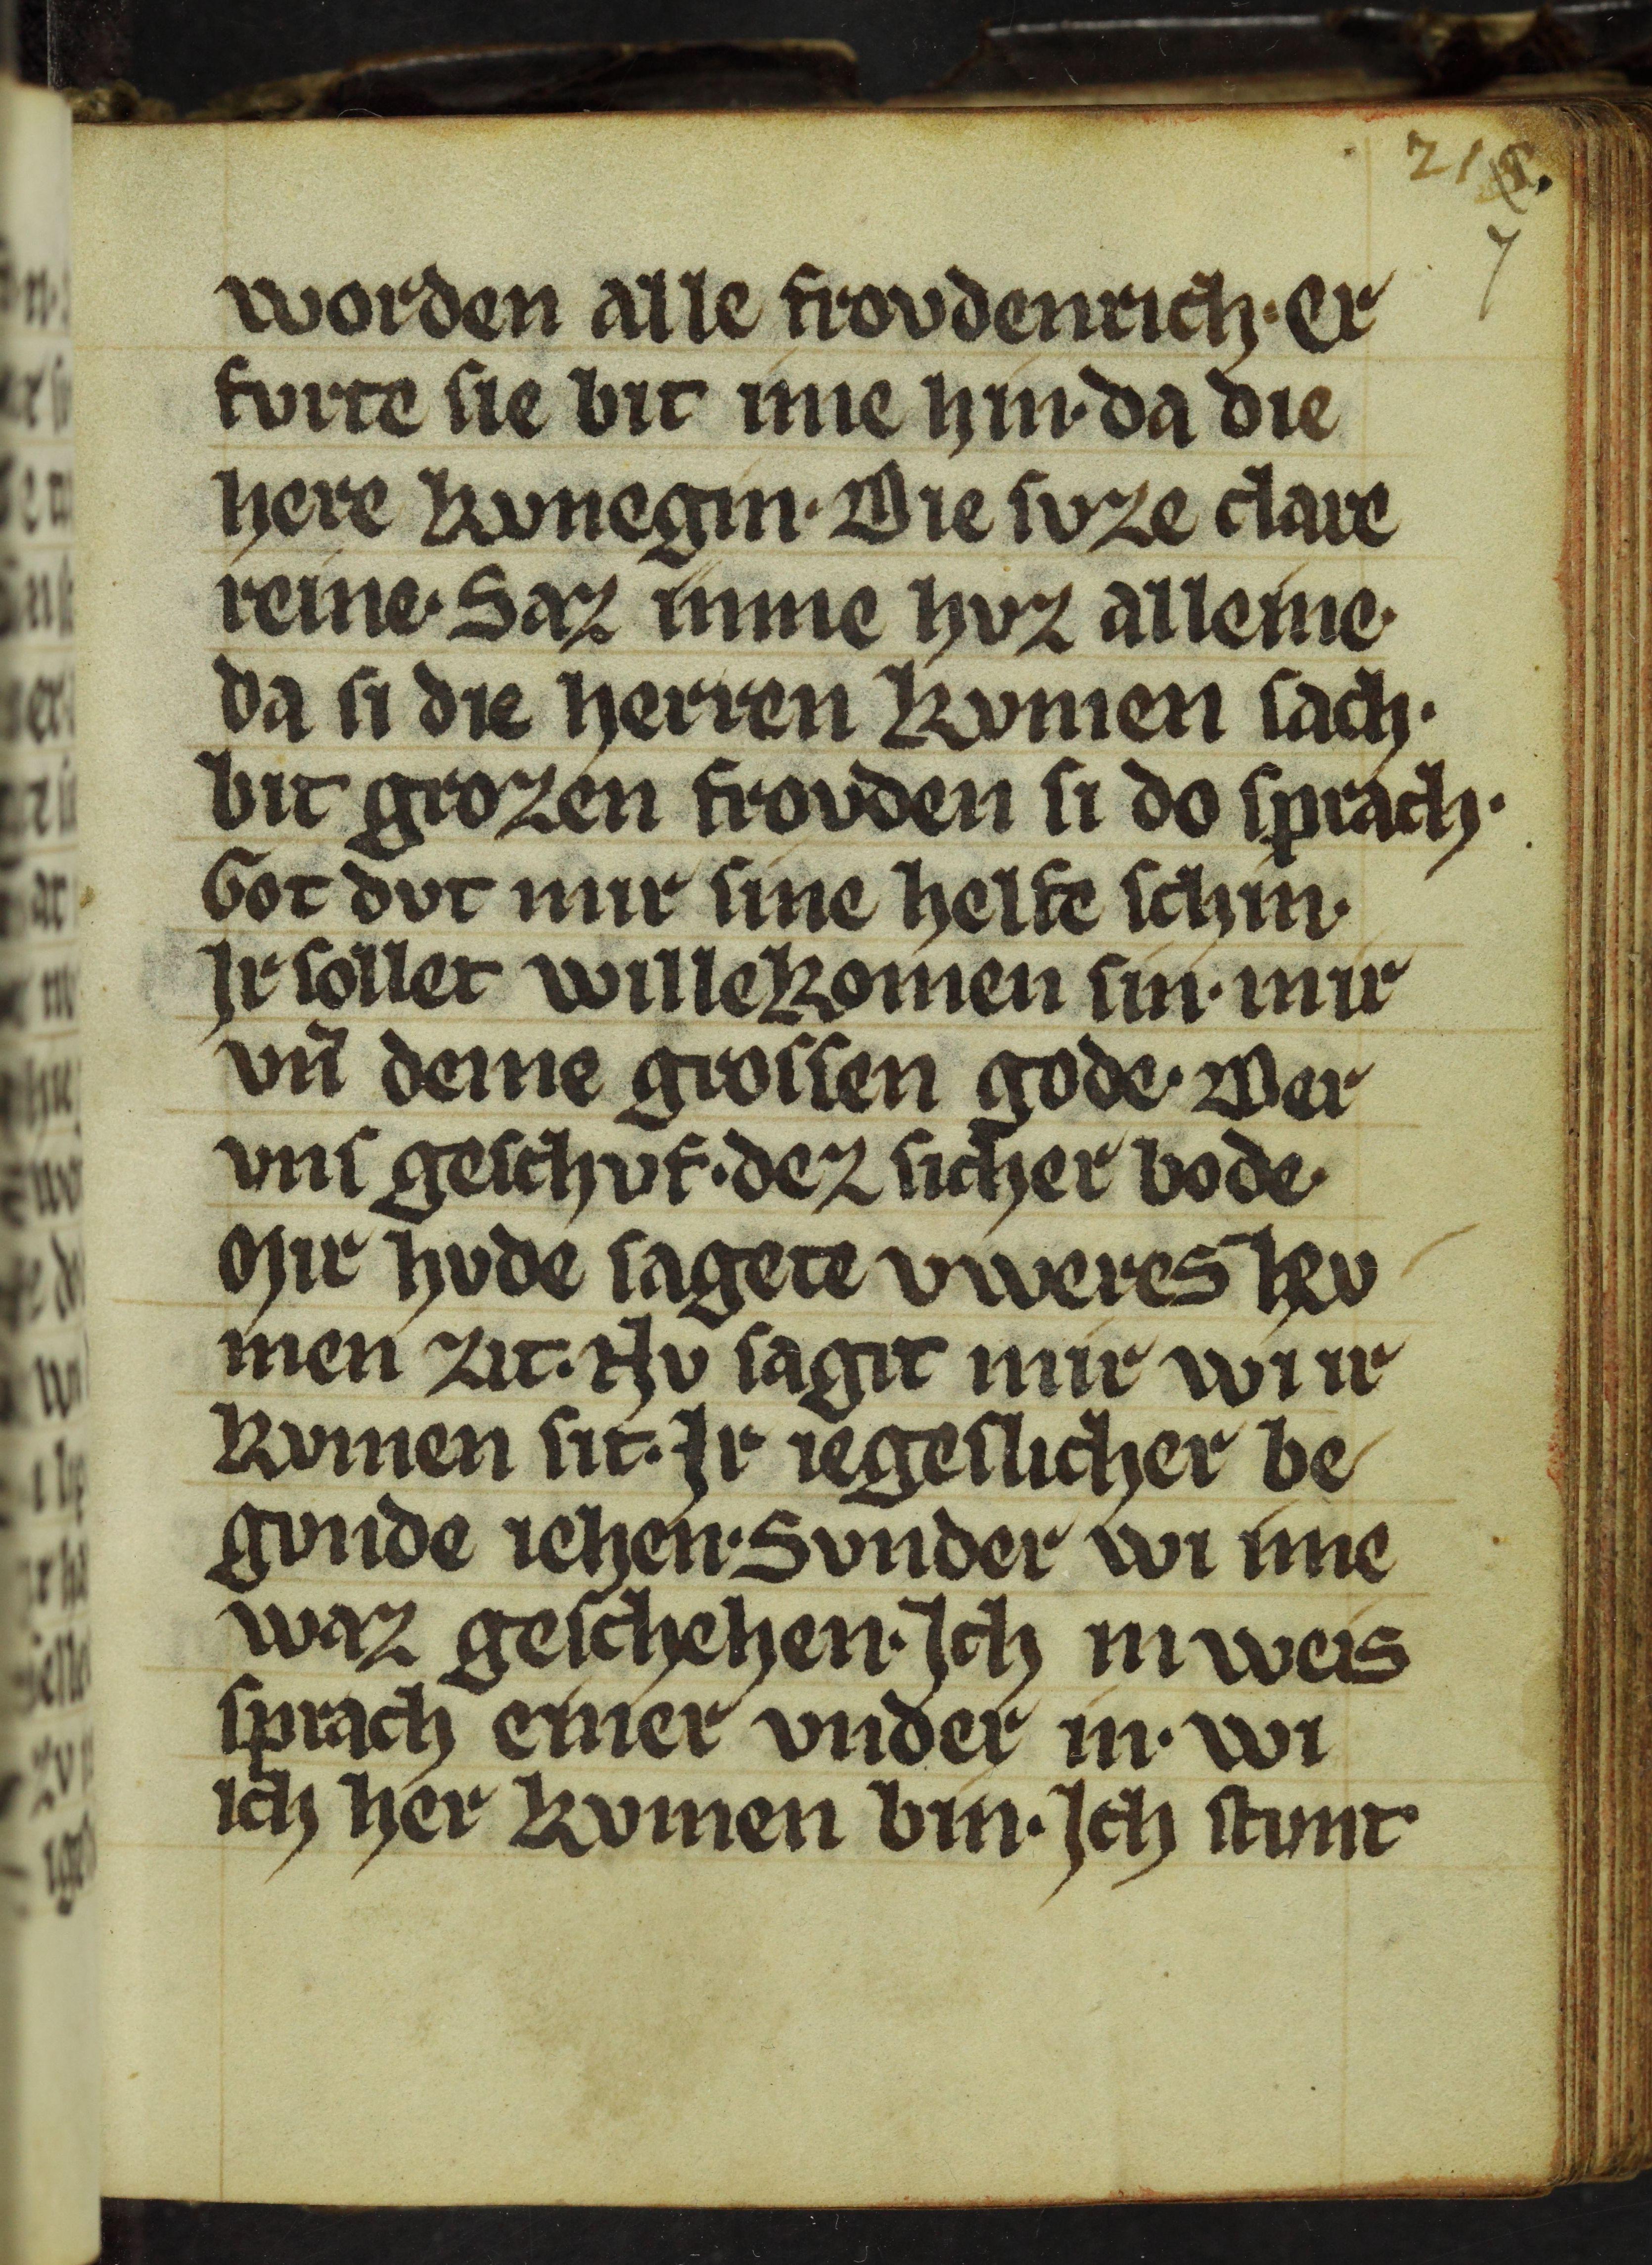 218.
7
worden alle froudenrich· Er
furte sie bit ime hin· da die
here kunegin· Die suze clare
reine· Saz imme huz alleine·
da si die herren kumen sach·
bit grozen frouden si do sprach·
Got dut mir sine helfe schin·
Ir sollet willekomen sin· mir
vn̄ deme grossen gode· Der
vns geschuf· dez sicher bode·
Mir hude sagete vweres ku
men zit· Nv sagit mir wi ir
kumen sit· Ir iegeslicher be
gunde iehen· Sunder wi ime
waz geschehen· Ich ni weis
sprach einer vnder in· wi
ich her kumen bin· Ich stunt